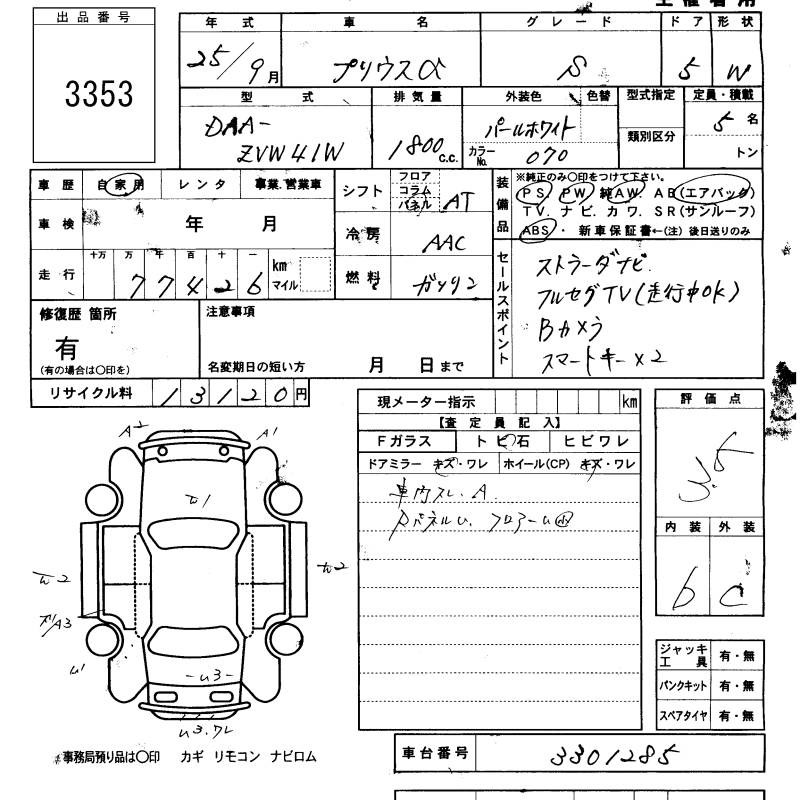 出品番号
3353
年式 車名 グレード ドア 形状
25/9月 プリウスα S 5 W
型式 排気量 外装色 色替 型式指定 定員・積載
DAA-
ZVW41W
1800 c.c.
パールホワイト
カラーNo. 070
類別区分
5名
トン
車歴 自家用 レンタ 事業.営業車
車検 年 月
走行 十万 万 千 百 十 一
77426 km マイル
シフト フロア コラム パネル AT
冷房 AAC
燃料 ガソリン
装備品
※純正のみ○印をつけて下さい。
PS. PW. 純AW. AB(エアバック)
TV. ナビ. カワ. SR(サンルーフ)
ABS・ 新車保証書←(注) 後日送りのみ
セールスポイント
ストラーダナビ
フルセグTV(走行中OK)
Bカメラ
スマートキー×2
修復歴 箇所
有
(有の場合は○印を)
注意事項
名変期日の短い方 月 日まで
リサイクル料 13120円
現メーター指示 km
【査定員記入】
Fガラス トビ石 ヒビワレ
ドアミラー キズ・ワレ ホイール(CP) キズ・ワレ
車内スレ. A
評価点
3.5
内装 外装
b C
A2 A1
U1
U3
U3.ワレ
ジャッキ工具 有・無
パンクキット 有・無
スペアタイヤ 有・無
事務局預り品は○印 カギ リモコン ナビロム
車台番号 3301285